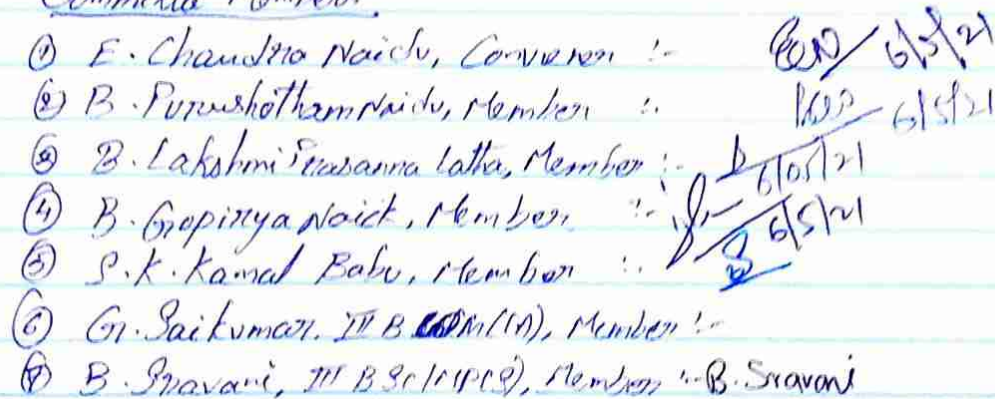 Committee Members:
① E. Chandra Naidu, Convener :- 6/5/21
② B. Purushotham Naidu, Member :- 6/5/21
③ B. Lakshmi Prasanna Latha, Member :- 6/05/21
④ B. Gopinya Naick, Member :- 6/5/21
⑤ S.K. Kamal Babu, Member :-
⑥ G. Saikumar, III B COM(CA), Member :-
⑦ B. Sravani, III BSc(MPCS), Member :- B. Sravani